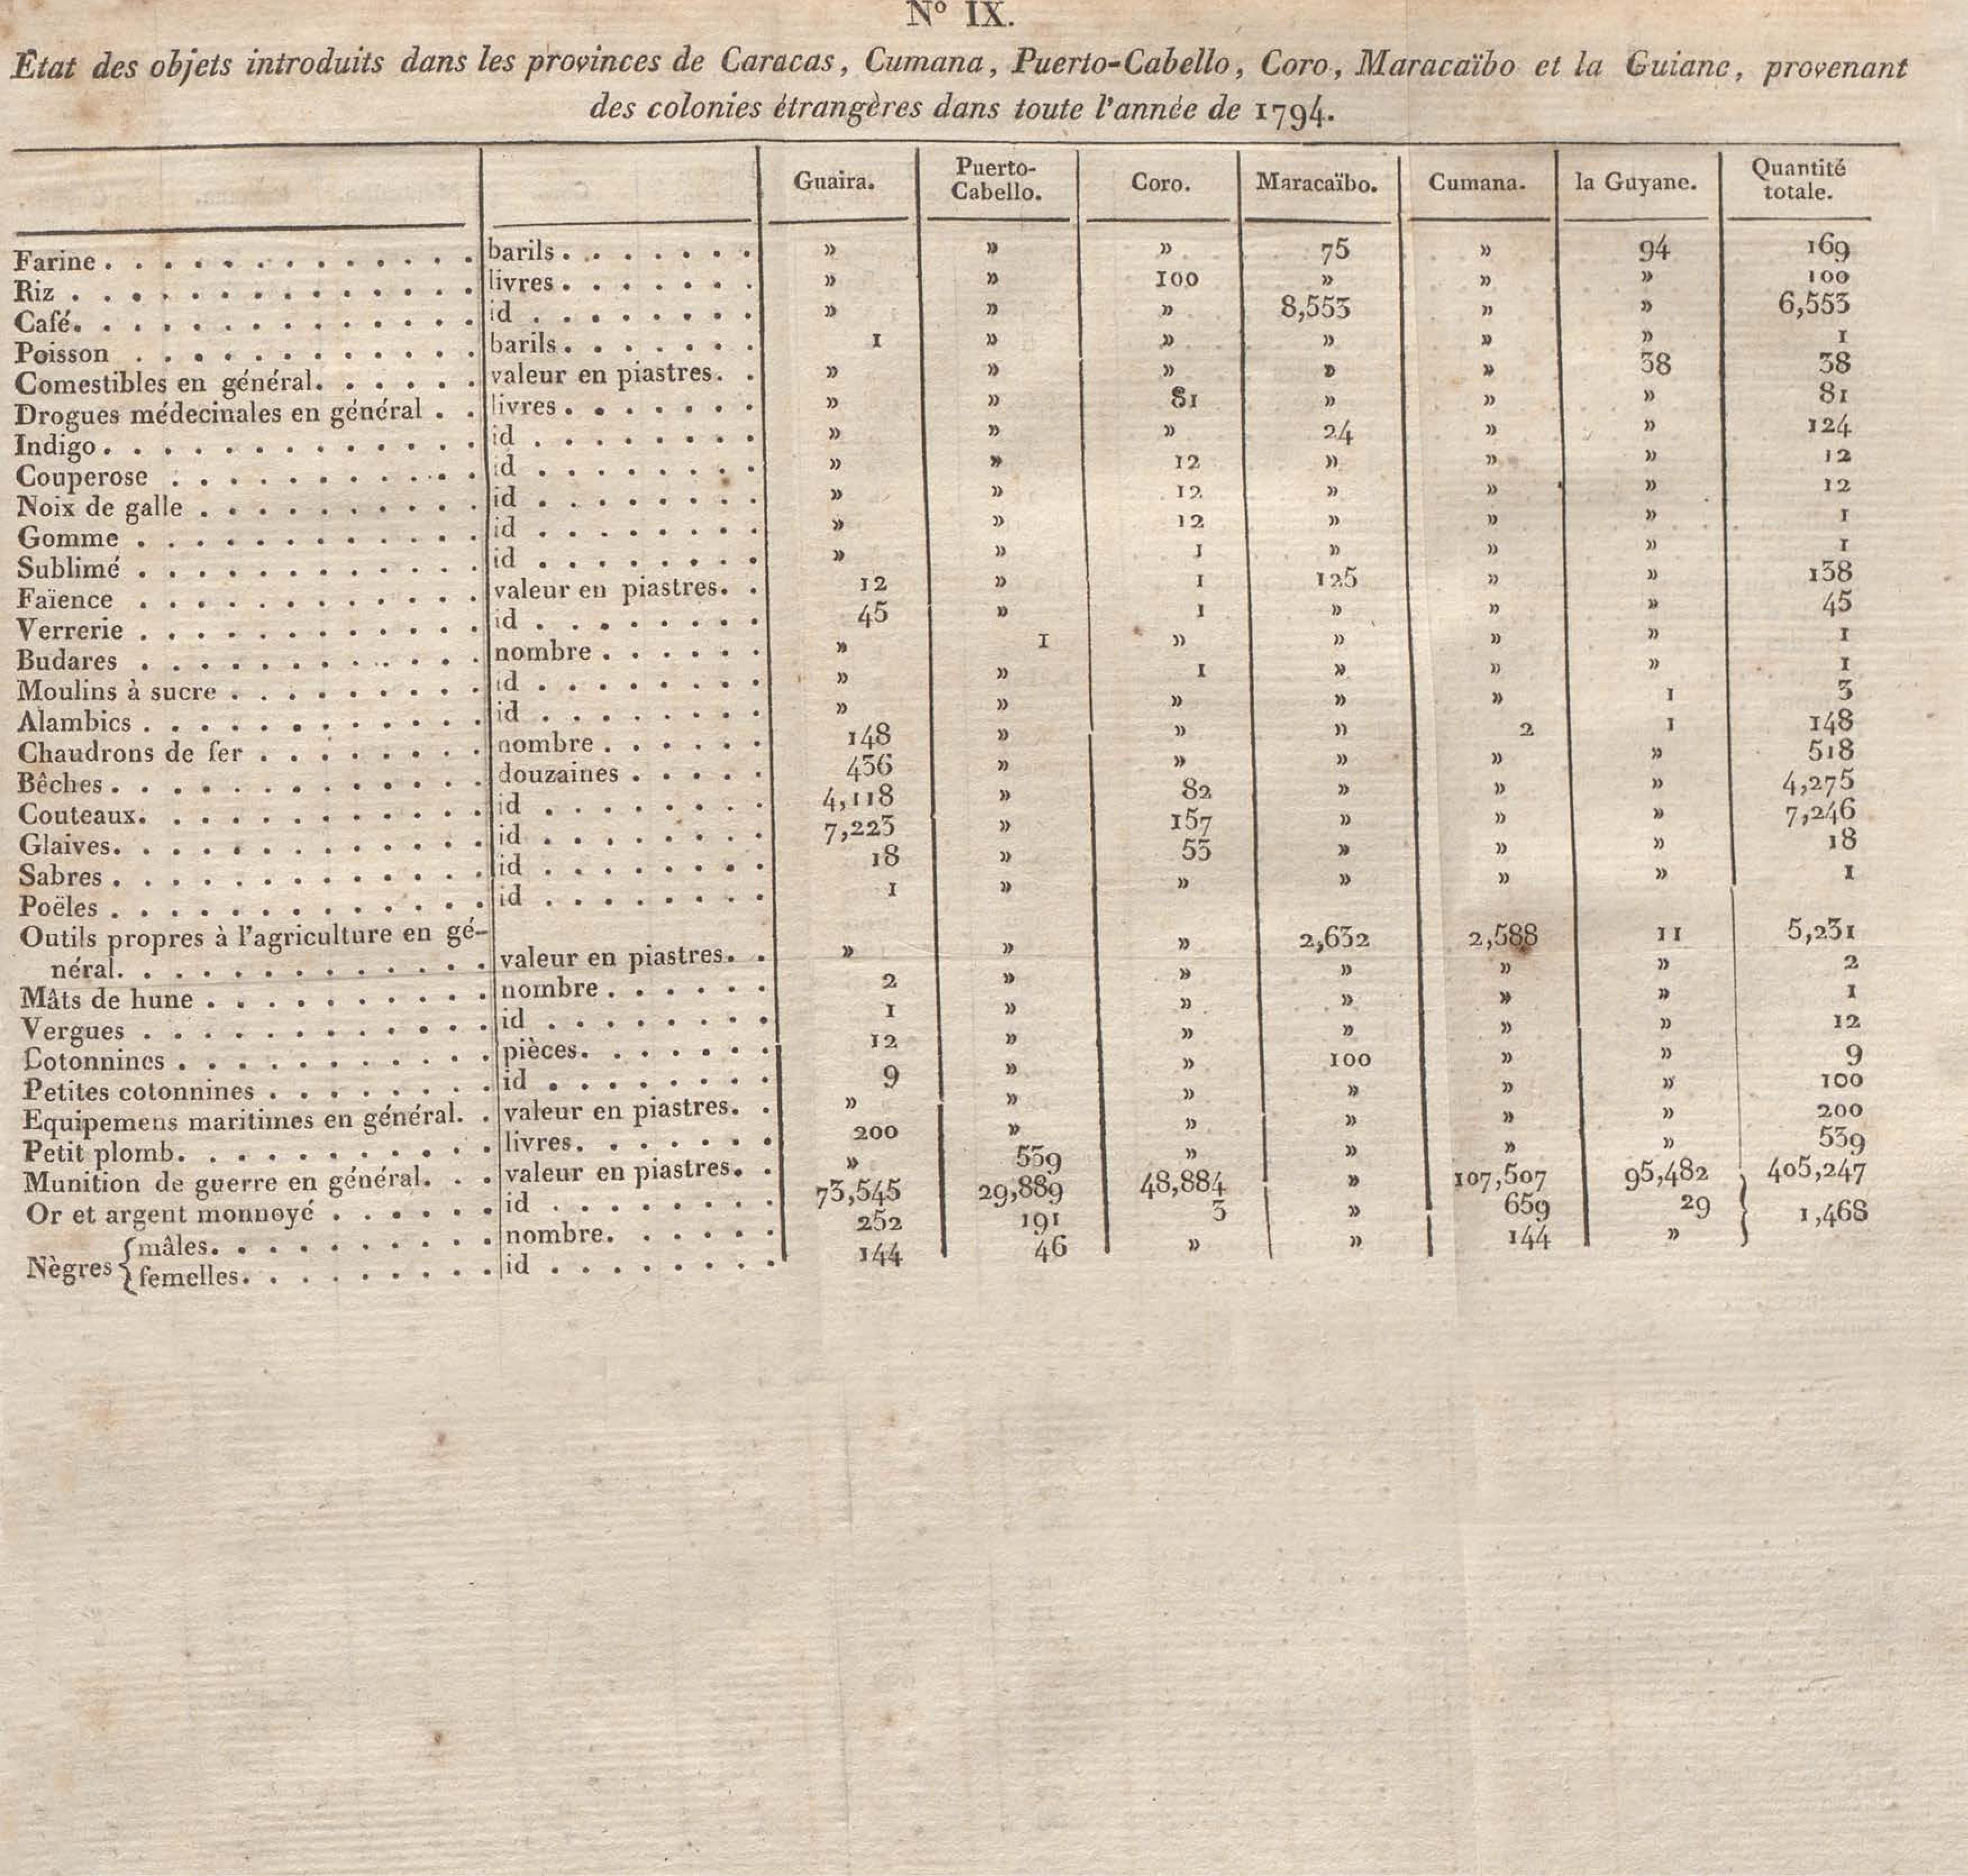 N° IX.
Etat des objets introduits dans les provinces de Caracas, Cumana, Puerto-Cabello, Coro, Maracaïbo et la Guiane, provenant
des colonies étrangères dans toute l'année de 1794.
Guaira. Puerto-Cabello. Coro. Maracaïbo. Cumana. la Guyane. Quantité totale.
Farine. barils. » » » 75 » 94 169
Riz livres. » » 100 » » » 100
Café. id » » » 8,553 » » 6,553
Poisson barils. 1 » » » » » 1
Comestibles en général. valeur en piastres. » » » » » 38 38
Drogues médecinales en général livres. » » 81 » » » 81
Indigo. id » » » 24 » » 124
Couperose id » » 12 » » » 12
Noix de galle id » » 12 » » » 12
Gomme id » » 12 » » » 1
Sublimé id » » 1 » » » 1
Faïence valeur en piastres. 12 » 1 125 » » 138
Verrerie id 45 » 1 » » » 45
Budares nombre » 1 » » » » 1
Moulins à sucre id » » 1 » » » 1
Alambics id » » » » » 1 3
Chaudrons de fer nombre 148 » » » 2 1 148
Bêches douzaines 436 » » » » » 518
Couteaux. id 4,118 » 82 » » » 4,275
Glaives. id 7,223 » 157 » » » 7,246
Sabres id 18 » 53 » » » 18
Poëles id 1 » » » » » 1
Outils propres à l'agriculture en gé-
néral. valeur en piastres. » » » 2,632 2,588 11 5,231
Mâts de hune nombre 2 » » » » » 2
Vergues id 1 » » » » » 1
Cotonnines pièces. 12 » » » » » 12
Petites cotonnines id 9 » » 100 » » 9
Equipemens maritimes en général. valeur en piastres. » » » » » » 100
Petit plomb. livres. 200 » » » » » 200
Munition de guerre en général. valeur en piastres. » 539 » » » » 539
Or et argent monnoyé id 73,545 29,889 48,884 » 107,507 95,482 405,247
Nègres { mâles. nombre. 252 191 3 » 659 29 } 1,468
femelles. id 144 46 » » 144 »